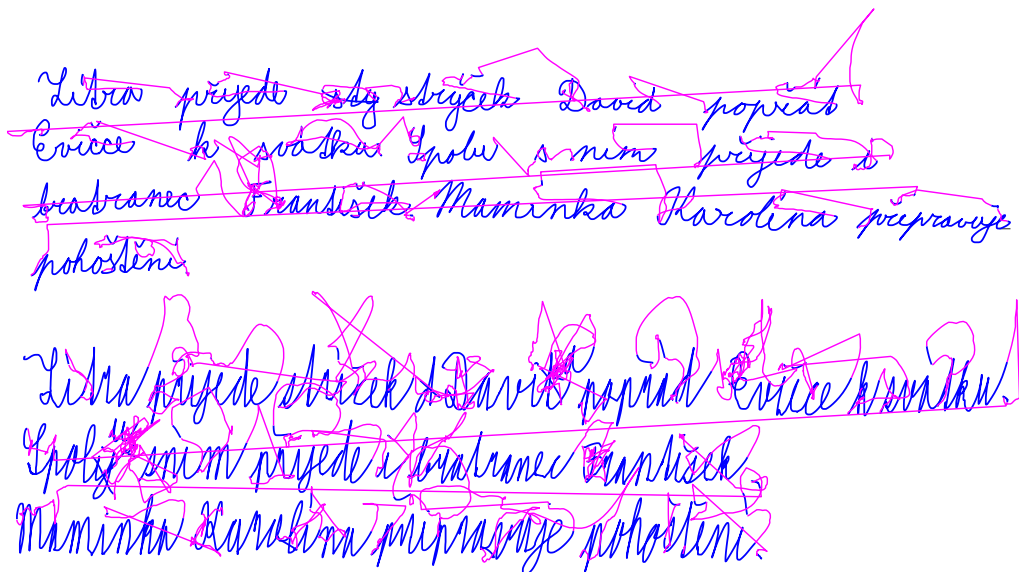 Zítra přijede strýček David popřát
Evičce k svátku. Spolu s ním přijede i
bratranec František. Maminka Karolína připravuje
pohoštění
Zítra přijede strýček David popřát Evičce k svátku.
Spolu s ním přijede i bratranec František.
Maminka Karolína připravuje pohoštění.